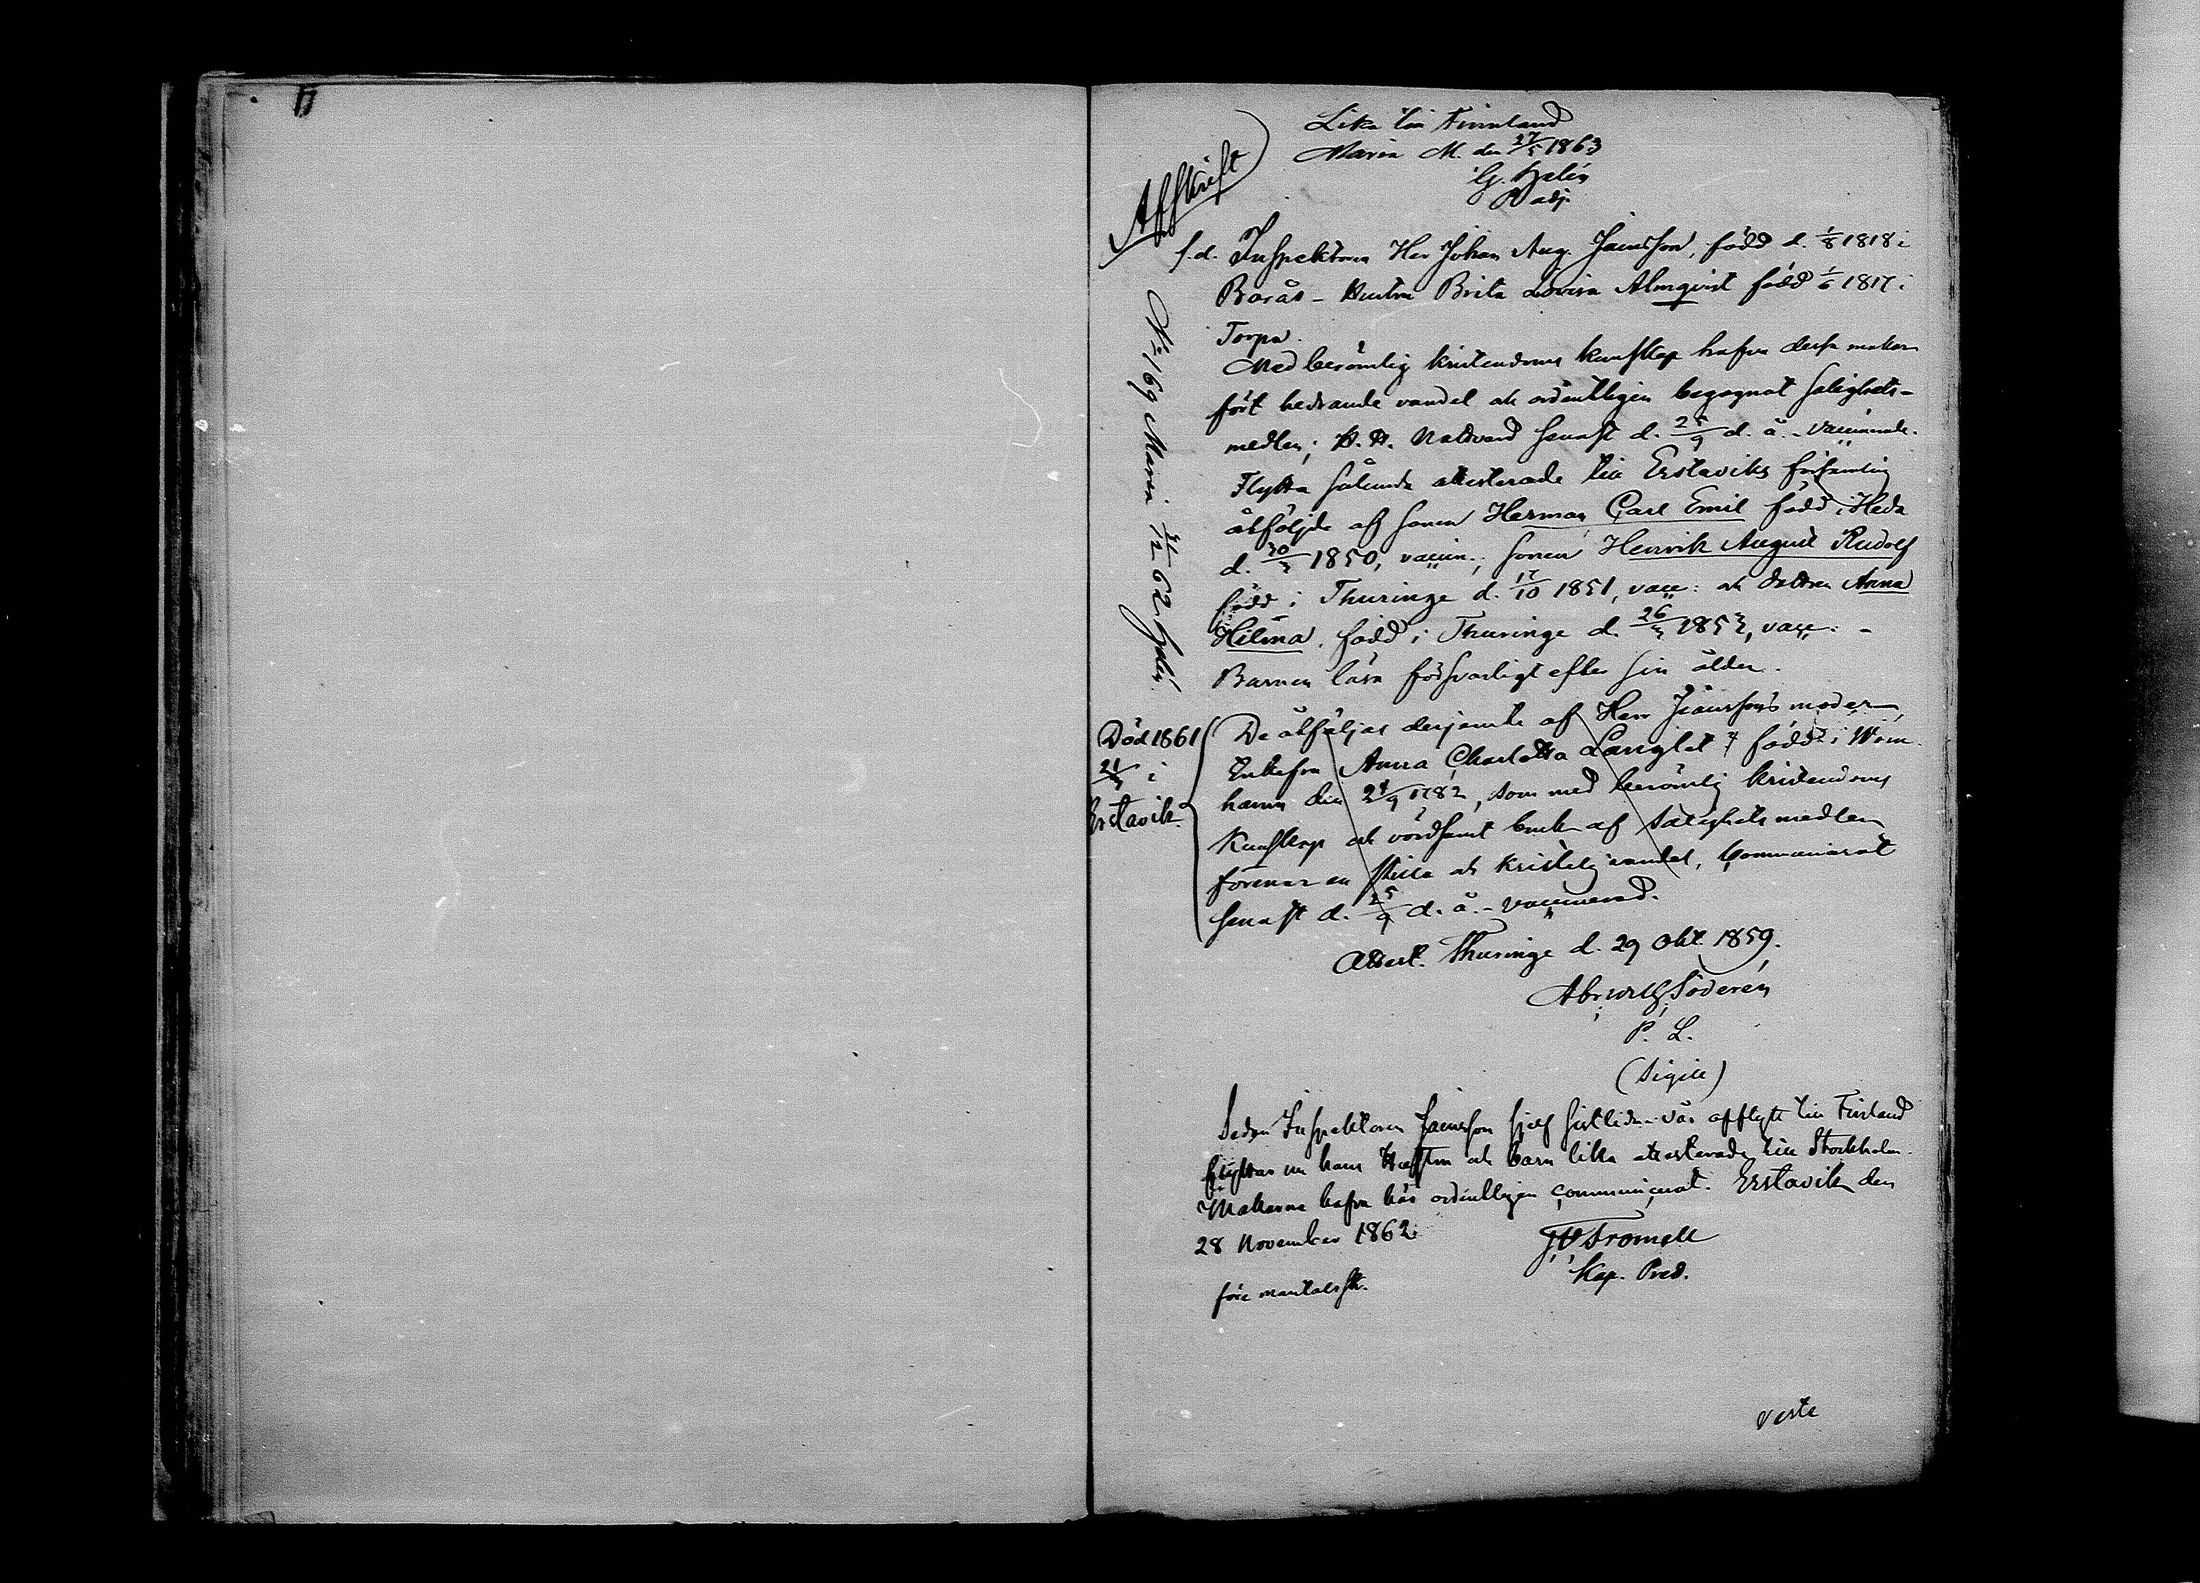 Lika till Finnland
Maria M. den 27/5 1863
G. Hjelén
Padj.
Afskrift
f.d. Inspektoren Herr Johan Aug. Jæmsson, född d. 1/8 1818 i
Borås - Hustru Brita Lovisa Almqvist född 1/6 1817 i
Torpa.
Med berömlig kristendoms kunskap hafva dessa makar
fört hedrande vandel och ordentligen begagnat salighets-
medlen; H. H. Nattvard senast d. 25/9 d. å. - vaccinerade.
Flytta sålunda attesterade till Erstaviks församling
åtföljde af sonen Herman Carl Emil född i Heda
d. 30/3 1850, vaccin., sonen Henrik August Rudolf
född i Thuringe d. 17/10 1851, vacc: och dottren Anna
Hilma. född i Thuringe d. 26/3 1853, vacc: -
Barnen läsa försvarligt efter sin ålder.
No 169 Maria 31/12 62 Hjelén.
Död 1861
21/3 i
Erstavik.
De åtföljas derjemte af Herr Jæmssons moder
Enkefru Anna Charlotta Langlet född i Wim.
hamn den 24/9 1782, som med berömlig kristendoms
kunskap och vördsamt bruk af salighetsmedlen
förenar en stilla och kristelig vandel, Communicerat
senast d. 25/9 d. å. - vaccinerad.
Attest. Thuringe d. 29 Okt. 1859.
Abr. Wilh. Söderén
P. L.
(Sigill)
Sedan Inspektoren Jæmsson sjelf sistlidne vår afflytt till Finland
flyttar nu hans Hustru och barn lika attesterade till Stockholm.
Makarne hafva här ordentligen communicerat. Erstavik den
28 November 1862
Tromell
Kap. Pred.
före mantalssk.